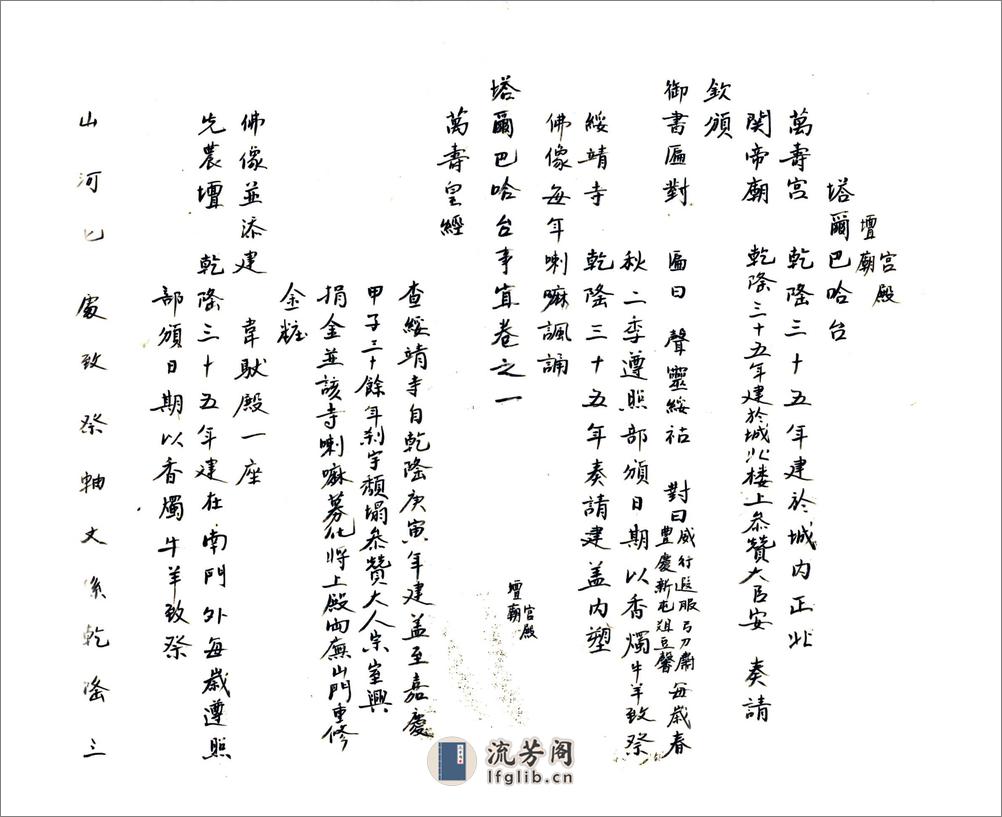 宮殿
壇廟
塔爾巴哈台
萬壽宮 乾隆三十五年建於城内正北
関帝廟 乾隆三十五年建於城北楼上叅贊大臣安 奏請
欽頒
御書匾對 匾曰 聲靈綏祜 對曰 威行遐服弓刀肅 豊慶新屯俎豆馨 每歲春
秋二季遵照部頒日期以香燭牛羊致祭
綏靖寺 乾隆三十五年奏請建盖内塑
佛像每年喇嘛諷誦
塔爾巴哈台事宜卷之一 宮殿 壇廟
萬壽皇經
查綏靖寺自乾隆庚寅年建盖至嘉慶
甲子三十餘年刹宇頹塌叅贊大人興
捐金並該寺喇嘛募化將上殿両廡山門重修
金粧
佛像並添建 韋馱殿一座
先農壇 乾隆三十五年建在南門外每歲遵照
部頒日期以香燭牛羊致祭
山河 處致祭軸文系乾隆三
流芳阁
lfglib.cn